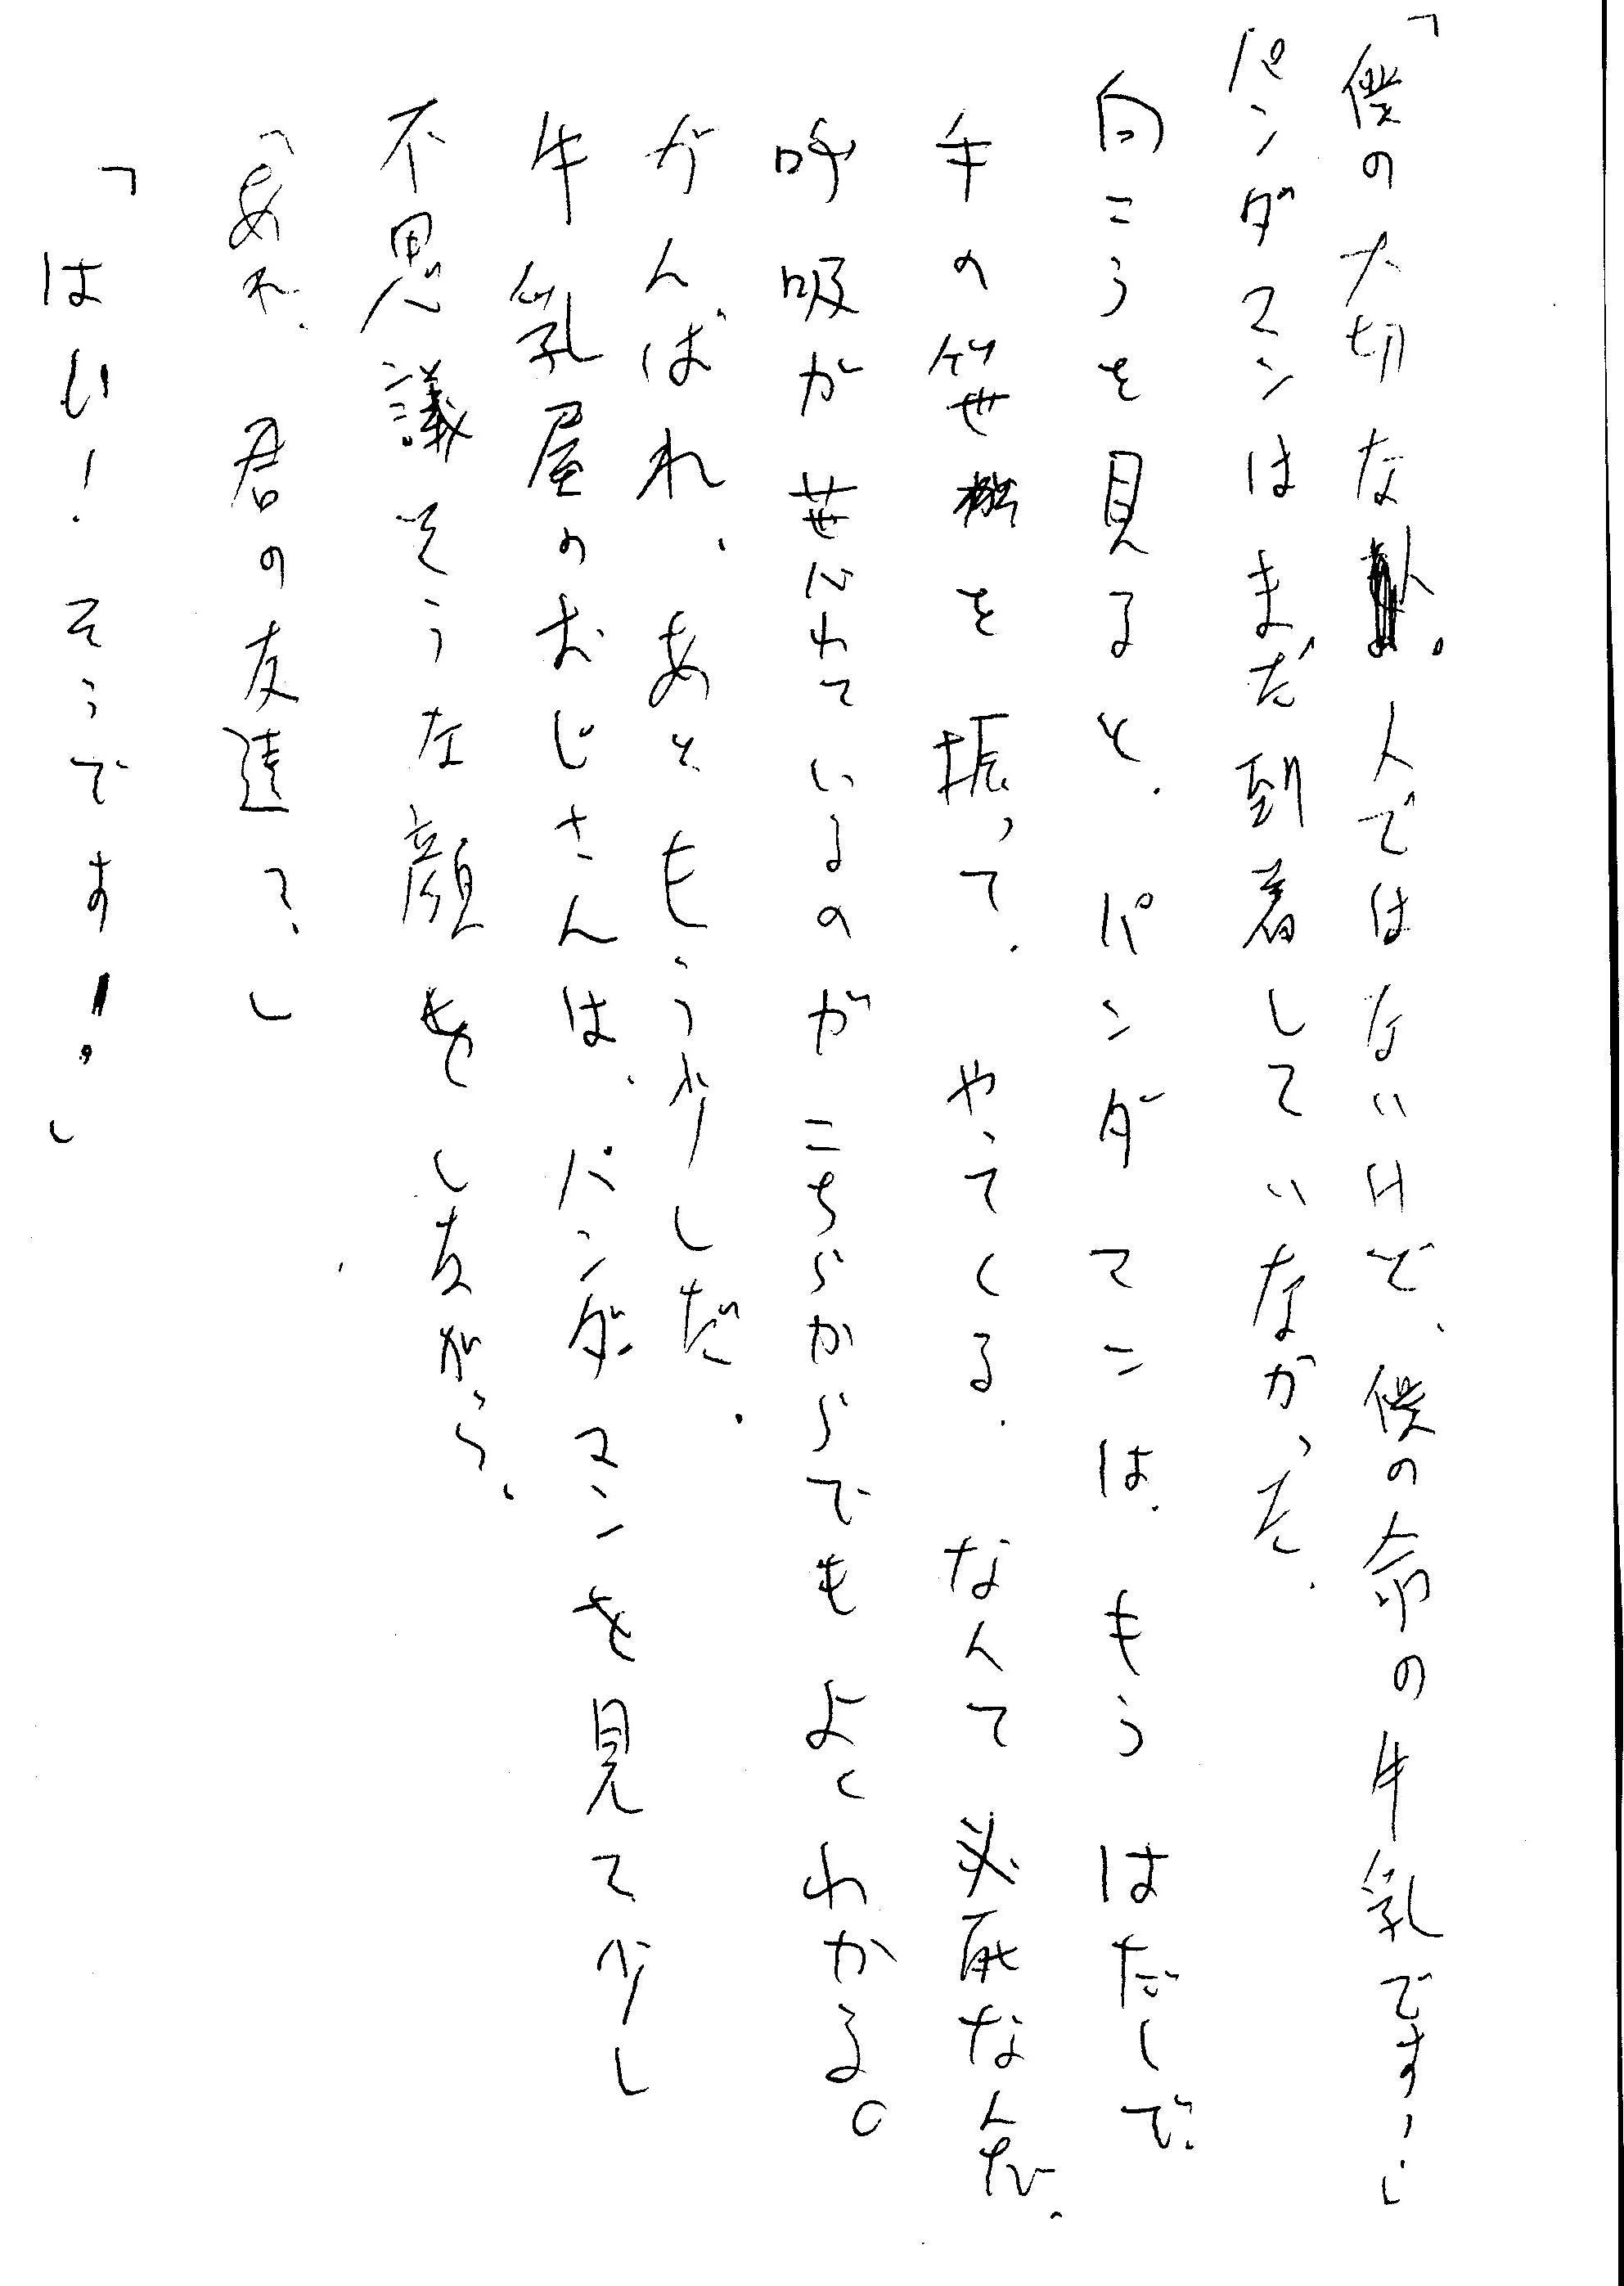 「僕の大切な人。人ではないけど、僕の命の牛乳です!」
パンダマンはまだ到着していなかった。
向こうを見ると、パンダマンは、もうはだしで、
手の笹を振って、やってくる。なんて必死なんだ。
呼吸が荒れているのがこちらからでもよくわかる。
がんばれ、あともう少しだ。
牛乳屋のおじさんは、パンダマンを見て少し
不思議そうな顔をしながら、
「あれ、君の友達?」
「はい!そうです!」